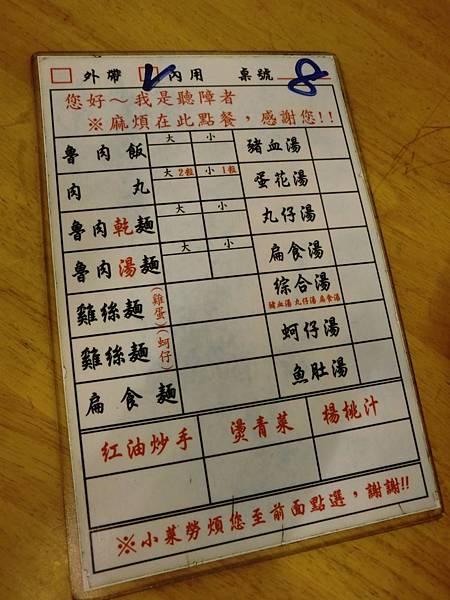 □ 外帶 ☑ 內用 桌號 8
您好～我是聽障者
※麻煩在此點餐，感謝您!!
魯肉飯 大 小 豬血湯
肉丸 大2粒 小1粒 蛋花湯
魯肉乾麵 大 小 丸仔湯
魯肉湯麵 大 小 扁食湯
雞絲麵(雞蛋) 綜合湯
豬血湯 丸仔湯 扁食湯
雞絲麵(蚵仔) 蚵仔湯
扁食麵 魚肚湯
紅油炒手 燙青菜 楊桃汁
※小菜勞煩您至前面點選，謝謝!!